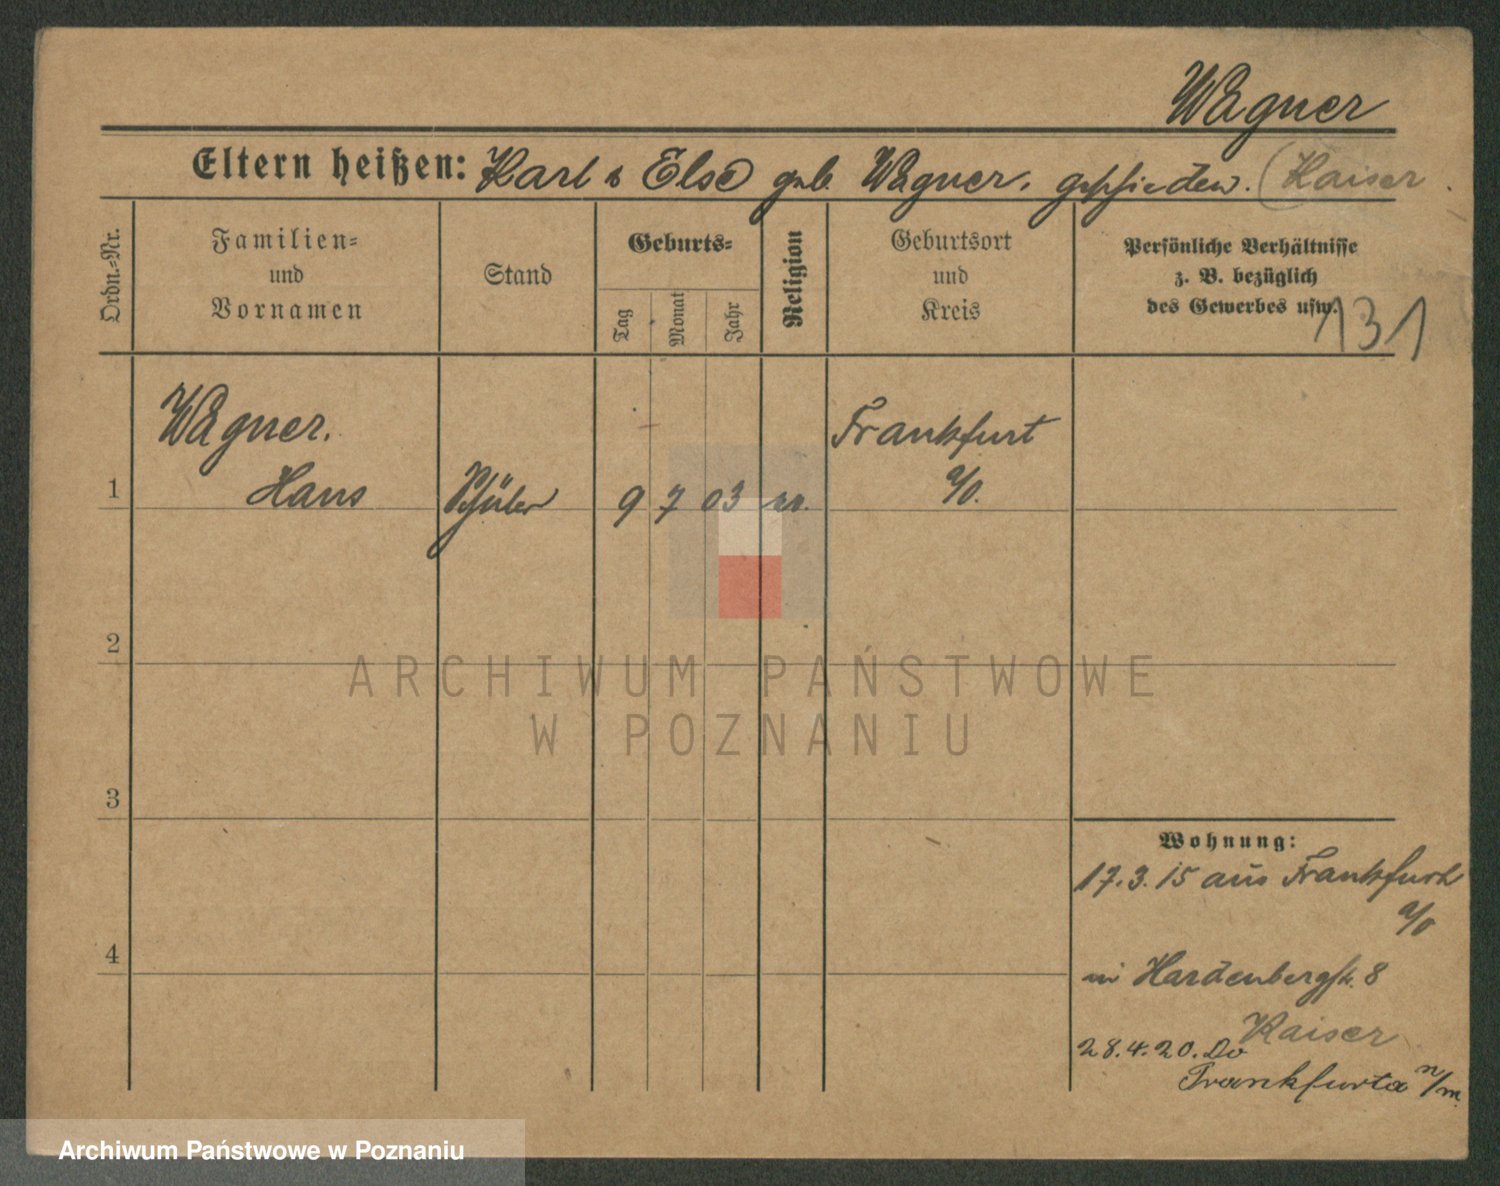 Wagner
Eltern heißen: Karl u Else geb. Wagner, geschieden. (Kaiser
Ordn.-Nr.
Familien- und Vornamen
Stand
Geburts-
Tag
Monat
Jahr
Religion
Geburtsort und Kreis
Persönliche Verhältnisse
z. B. bezüglich
des Gewerbes usw.
131
Wagner.
Frankfurt
1 Hans Schüler 9 7 03 a/O.
2
ARCHIWUM PAŃSTWOWE
W POZNANIU
3
Wohnung:
17.3.15 aus Frankfurt
a/O
4
in Hardenbergstr. 8
Kaiser
28.4.20.
Frankfurt a
n/m.
Archiwum Państwowe w Poznaniu